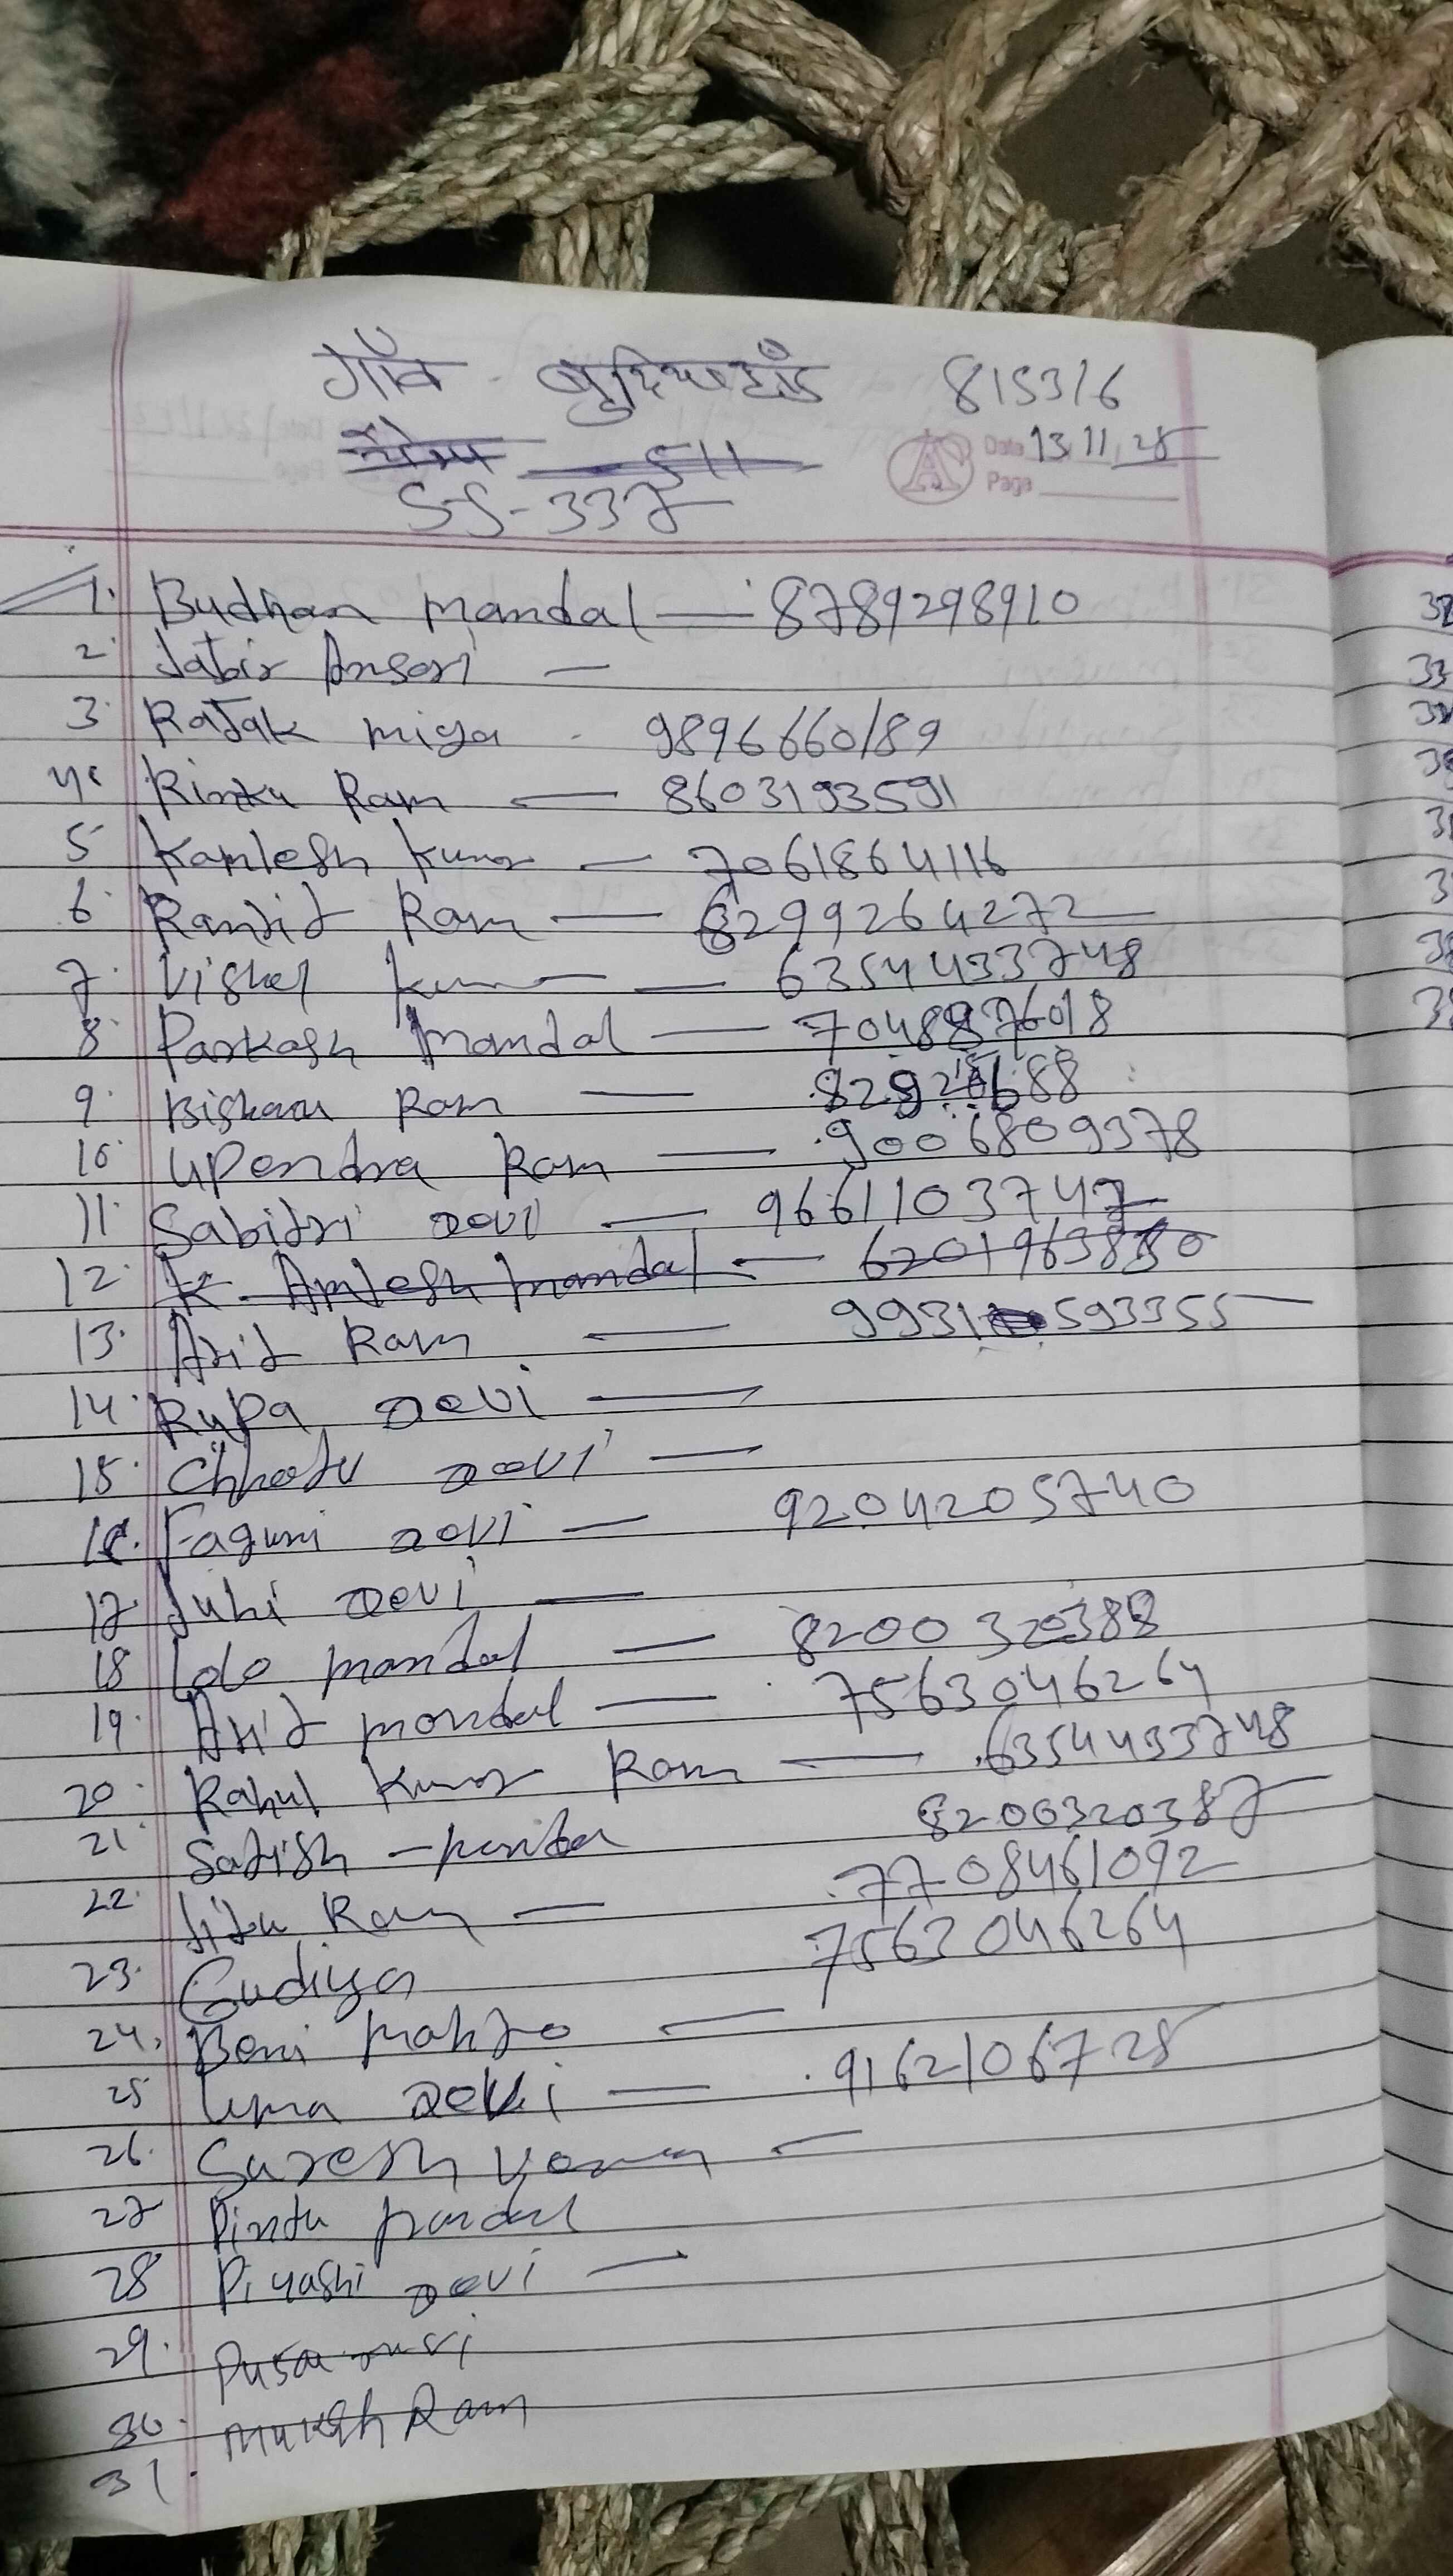 गाँव - बुढ़ियाटाँड़ 815316
Date 13.11.25
Page
SS-337
1. Budhan mandal — 8789298910
2. Jabir Ansari —
3. Rajak miya - 9896660189
4. Rinku Ram — 8603193591
5 Kamlesh kumar — 7061864116
6. Ranjit Ram — 8299264272
7. Vishal kumar — 6354433748
8. Parkash mandal — 7048876018
9. Bishanu Ram —
10. Upendra Ram — 9006809378
11. Sabitri Devi — 9661103747
12. K. Amlesh mandal — 6201963880
13. Ajit Ram — 9931593355
14. Rupa Devi —
15. Chhotu Devi —
16. Faguni Devi — 9204205740
17. Juhi Devi —
18 Lolo mandal — 8200320388
19. Ajit mondal — 7563046264
20. Rahul Kumar Ram — 6354433748
21. Satish - 8200320387
22. Jitu Ram — 7708461092
23. Gudiya 7563046264
24. Beni mahto —
25 Uma Devi — 9162106728
26. Suresh —
27 Pintu mandal
28 Piyashi Devi —
29.
30. mukesh Ram
31.
32
33